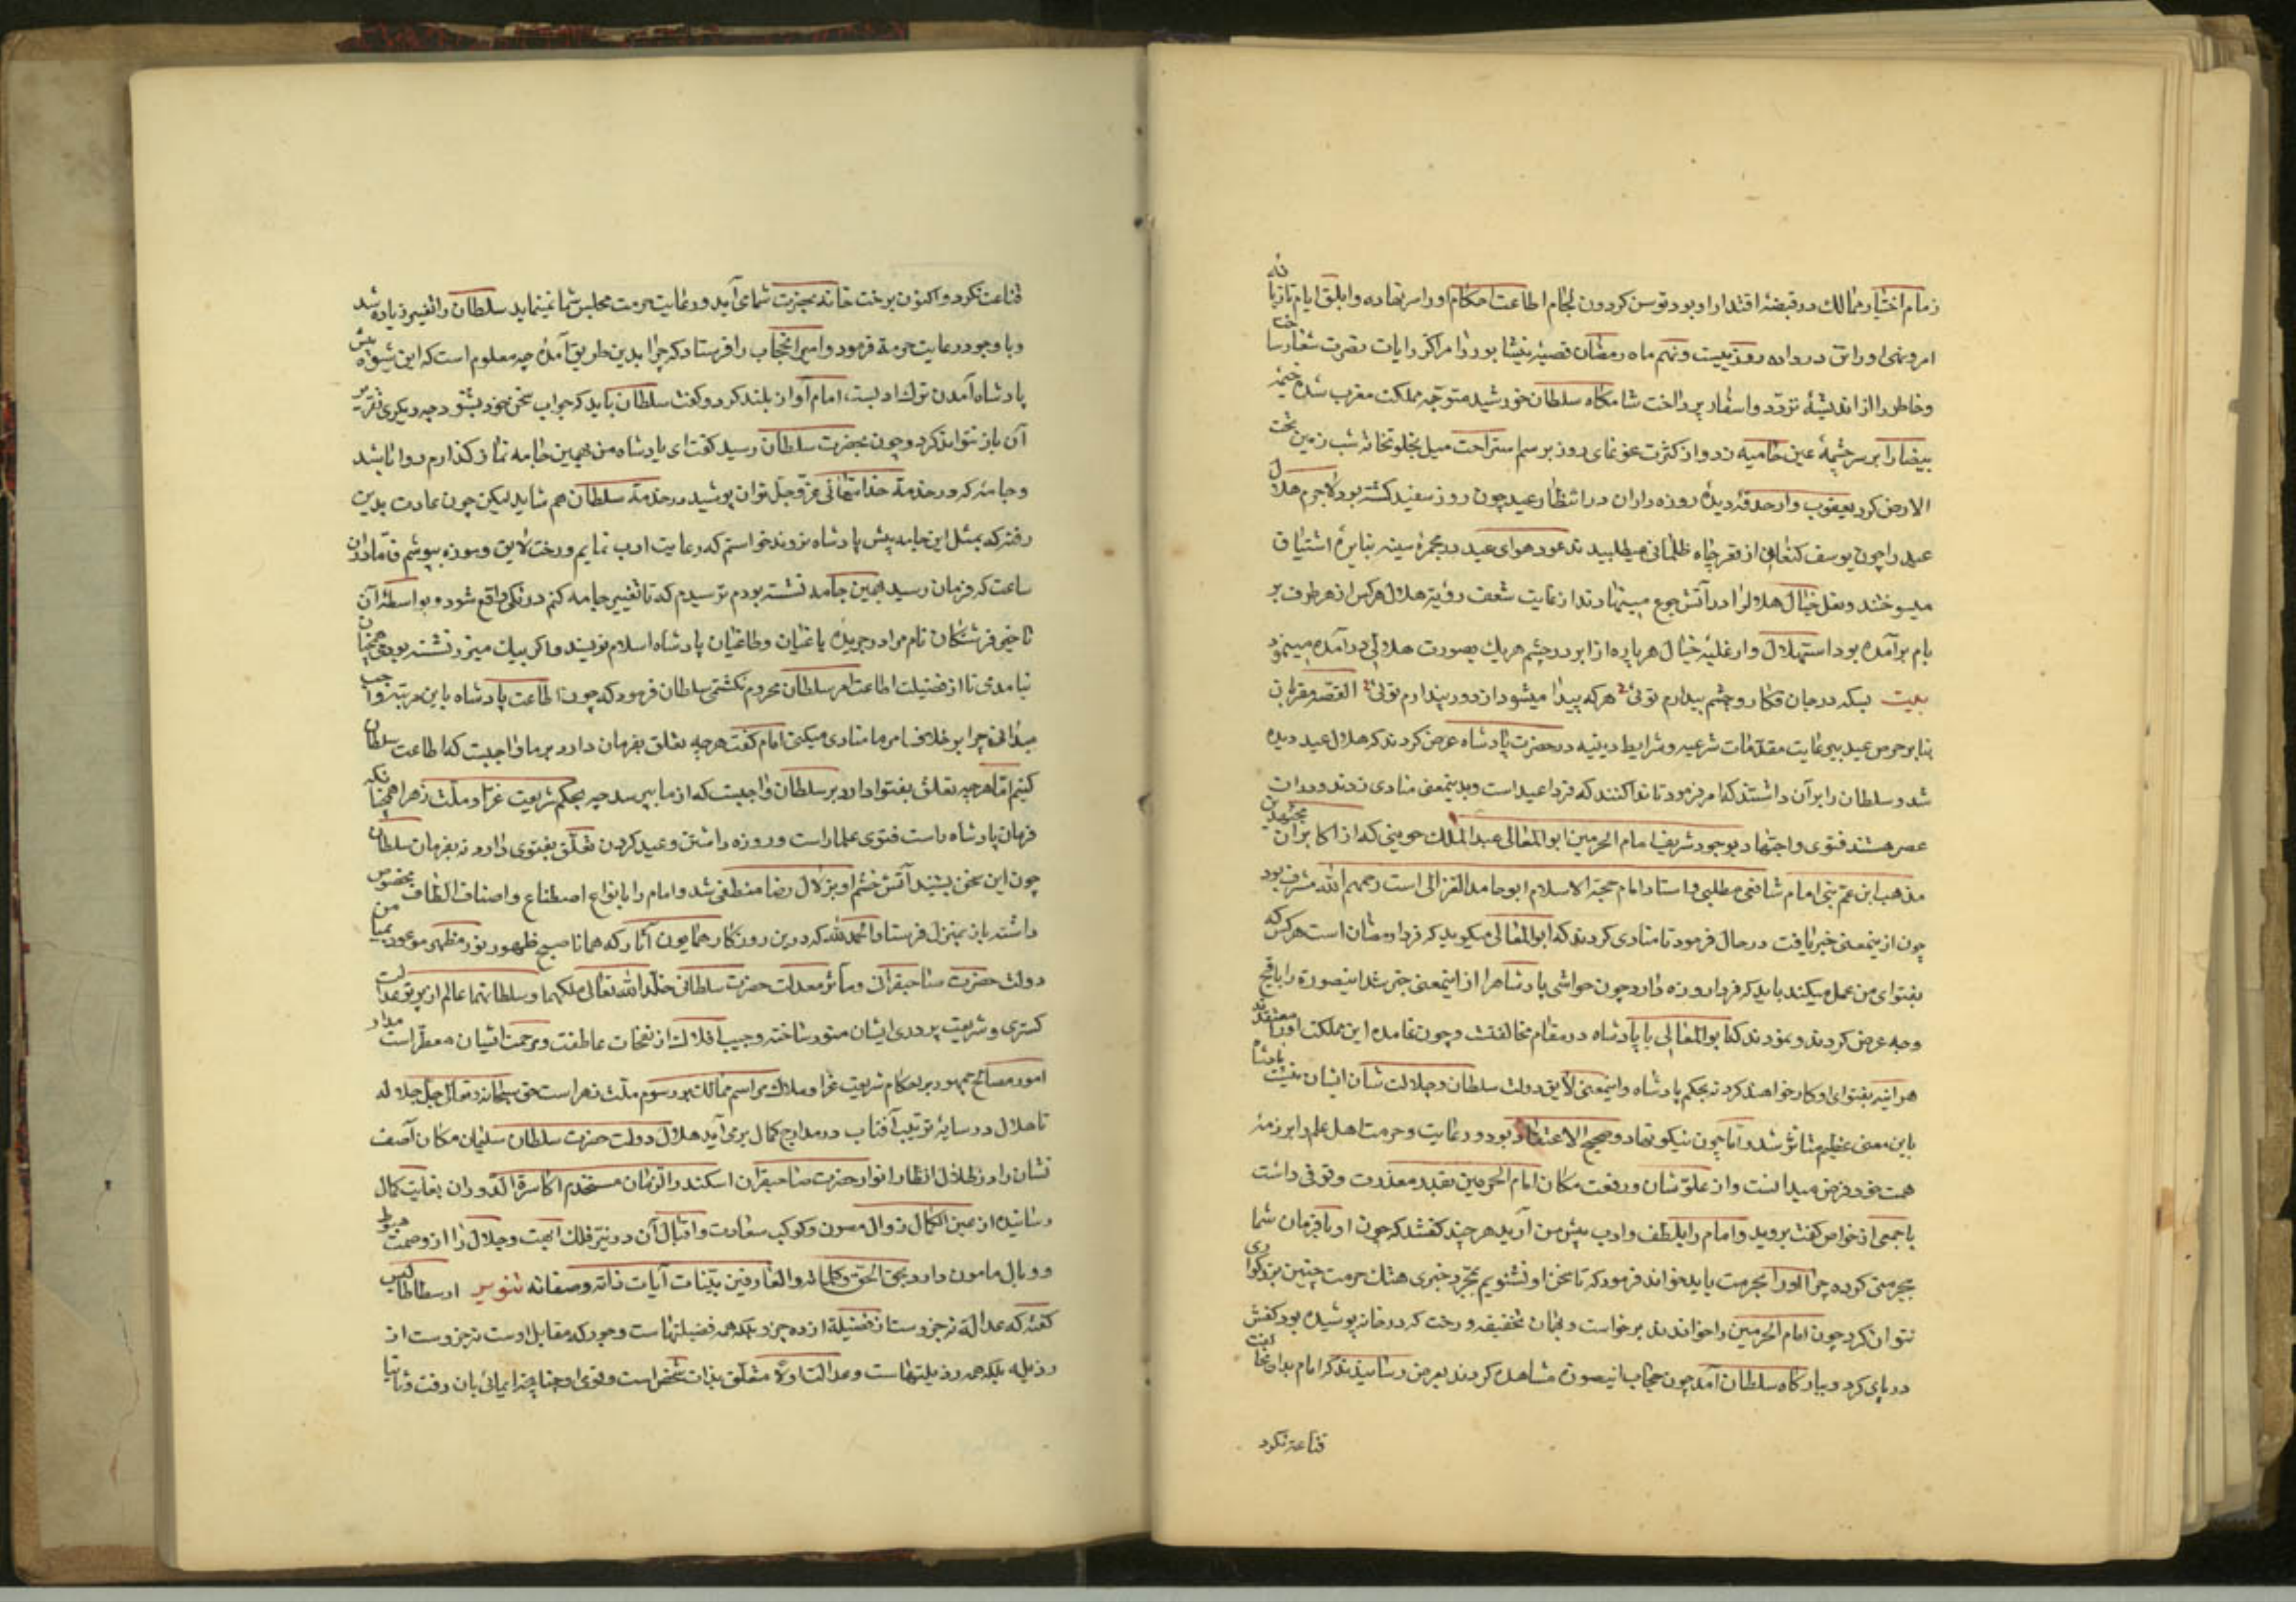 زمام اختیار ممالک در قبضهٔ اقتدار او بود و توسن گردون لجام اطاعت احکام او را سر نهاده و ابلق ایام تازیانه
امر و نهی او را تن در داده روز بیست و نهم ماه رمضان قصبهٔ نیشابور را مراکز رایات نصرت شعار ساخت
و خاطر را از اندیشهٔ تردد و اسفار پرداخت شامگاه سلطان خورشید متوجه مملکت مغرب شده خیمهٔ
بیضا را بر سر چشمهٔ عین حامیه زد و از کثرت غوغای روز برسم استراحت میل بخلوتخانه شب زمین تحت
الارض کرد یعقوب وار حدقهٔ دیدهٔ روزه داران در انتظار عید چون روز سفید گشته بود لاجرم هلال
عید را چون یوسف کنعانی از قعر چاه ظلمانی میطلبیدند عود هوای عید در مجمرهٔ سینه بنایرهٔ اشتیاق
میسوختند و نعل خیال هلال را در آتش جوع مینهادند از غایت شعف رؤیة هلال هرکس از هر طرف بر
بام برآمده بود استهلال و از غلبهٔ خیال هر پاره از ابر در چشم هر یک بصورت هلالی در آمده مینمود
بیت بسکه در جان فکار و چشم بیدارم توئی هرکه پیدا میشود از دور پندارم توئی القصه مقربان
بنابر حرص عید بی رعایت مقدمات شرعیه و شرایط دینیه در حضرت پادشاه عرض کردند که هلال عید دیده
شد و سلطان را بر آن داشتند که امر فرمود تا ندا کنند که فردا عید است و بدینمعنی منادی زدند و در آن
عصر مسند فتوی و اجتهاد بوجود شریف امام الحرمین ابوالمعالی عبدالملک جوینی که از اکابر آن مجتهدین
مذهب ابن عم نبی امام شافعی مطلبی و استاد امام حجة الاسلام ابوحامد الغزالی است رحمهم الله مشرف بود
چون ازینمعنی خبر یافت در حال فرمود تا منادی کردند که ابوالمعالی میگوید که فردا رمضان است هرکس که
بفتوای من عمل میکند باید که فردا روزه دارد چون حواشی پادشاه را از اینمعنی خبر شد اینصورة را باقبح
وجه عرض کردند و نمودند که ابوالمعالی با پادشاه در مقام مخالفتست و چون عامه این مملکت او را معتقدند
هر آینه بفتوای او کار خواهند کرد نه بحکم پادشاه و اینمعنی لایق دولت سلطان و جلالت شان ایشان نیست پادشاه
باین معنی عظیم متاثر شد و اما چون نیکو نهاد و صحیح الاعتقاد بود و رعایت و حرمت اهل علم را بر ذمهٔ
همت خود فرض میدانست و از علو شان و رفعت مکان امام الحرمین بقدر معذرت وقوفی داشت
با جمعی از خواص گفت بروید و امام را بلطف و ادب پیش من آرید هر چند گفتند که چون او با فرمان شما
بیحرمتی کرده چرا او را بحرمت باید خواند فرمود که تا سخن او نشنویم بمجرد خبری هتک حرمت چنین بزرگواری
نتوان کرد چون امام الحرمین را خواندند برخواست و بهمان تخفیفه و رخت که در خانه پوشیده بود کفش
در پای کرد و ببارگاه سلطان آمد چون حجاب اینصورة مشاهده کردند بعرض رسانیدند که امام بدان مخالفت
قناعة نکرد
قناعت نکرد و اکنون برخت خانه بحضرت شما می آید و رعایت حرمت مجلس شما نمینماید سلطان را تغییر زیاده شد
و با وجود رعایت حرمة فرمود و امیر الحجاب را فرستاد که چرا بدین طریق آمدهٔ چه معلوم است که این شیوه پیش
پادشاه آمدن ترک ادبست امام آواز بلند کرد و گفت سلطان باید که جواب سخن خود بشنود چه دیگری تقریر
آن باز نتواند کرد و چون بحضرت سلطان رسید گفت ای پادشاه من بهمین جامه نماز گذارم و روا باشد
و جامهٔ که در خدمة خدایتعالی عز و جل توان پوشید در خدمة سلطان هم شاید لیکن چون عادت بدین
رفته که بمثل این جامه پیش پادشاه نروند خواستم که رعایت ادب نمایم و رخت لایق و موزه بپوشم فاما در آن
ساعت که فرمان رسید بهمین جامه نشسته بودم ترسیدم که تا تغییر جامه کنم درنگی واقع شود و بواسطهٔ آن
تاخیر فرشتگان نام مرا در جریدهٔ یاغیان و طاغیان پادشاه اسلام نویسند و اگر بیک میزر نشسته بودمی همچنان
بیامدمی تا از فضیلت اطاعت امر سلطان محروم نگشتمی سلطان فرمود که چون اطاعت پادشاه باین مرتبه واجب
میدانی چرا بر خلاف امر ما منادی میکنی امام گفت هرچه تعلق بفرمان دارد بر ما واجبست که اطاعت سلطان
کنیم اما هرچه تعلق بفتوا دارد بر سلطان واجبست که از ما بپرسد چه بحکم شریعت غرا و ملت زهرا همچنانکه
فرمان پادشاه راست فتوی علما راست و روزه داشتن و عید کردن تعلق بفتوی دارد نه بفرمان سلطان
چون این سخن بشنید آتش خشم او بزلال رضا منطفی شد و امام را بانواع اصطناع و اصناف الطاف مخصوص
داشته باز بمنزل فرستاد الحمدلله که درین روزگار همایون آثار که همانا صبح ظهور نور مظهر موعود بمیامن
دولت حضرت صاحبقرانی و مآثر معدلت حضرت سلطانی خلد الله تعالی ملکهما و سلطانهما عالم از پرتو عدالت
گستری و شریعت پروری ایشان منور ساخته و جیب افلاک از نفحات عاطفت و مرحمت ایشان معطر است مدار
امور مصالح جمهور بر احکام شریعت غرا و ملاک مراسم ممالک بر رسوم ملت زهراست حق سبحانه و تعالی جل جلاله
تا هلال در سایهٔ تربیت آفتاب در مدارج کمال برمی آید هلال دولت حضرت سلطان سلیمان مکان آصف
نشان را در ظلال انظار انوار حضرت صاحبقران اسکندر الزمان مستخدم اکاسرة الدوران بغایت کمال
رسانیده از عین الکمال زوال مصون و کوکب سعادت و اقبال آن دو نیر فلک ابهت و جلال را از وصمت هبوط
و وبال مامون دارد بحق الحق و کلماته و العارفین ببینات آیات ذاته و صفاته تنویر ارسطاطالیس
گفته که عدالة نه جزوست از فضیلة از ده جزو بلکه همه فضیلتهاست و جور که مقابل اوست نه جزوست از
رذیله بلکه همه رذیلتهاست و عدالت اولا متعلق بذات شخص است و قوی او چنانچه ایمائی بان رفت و ثانیا